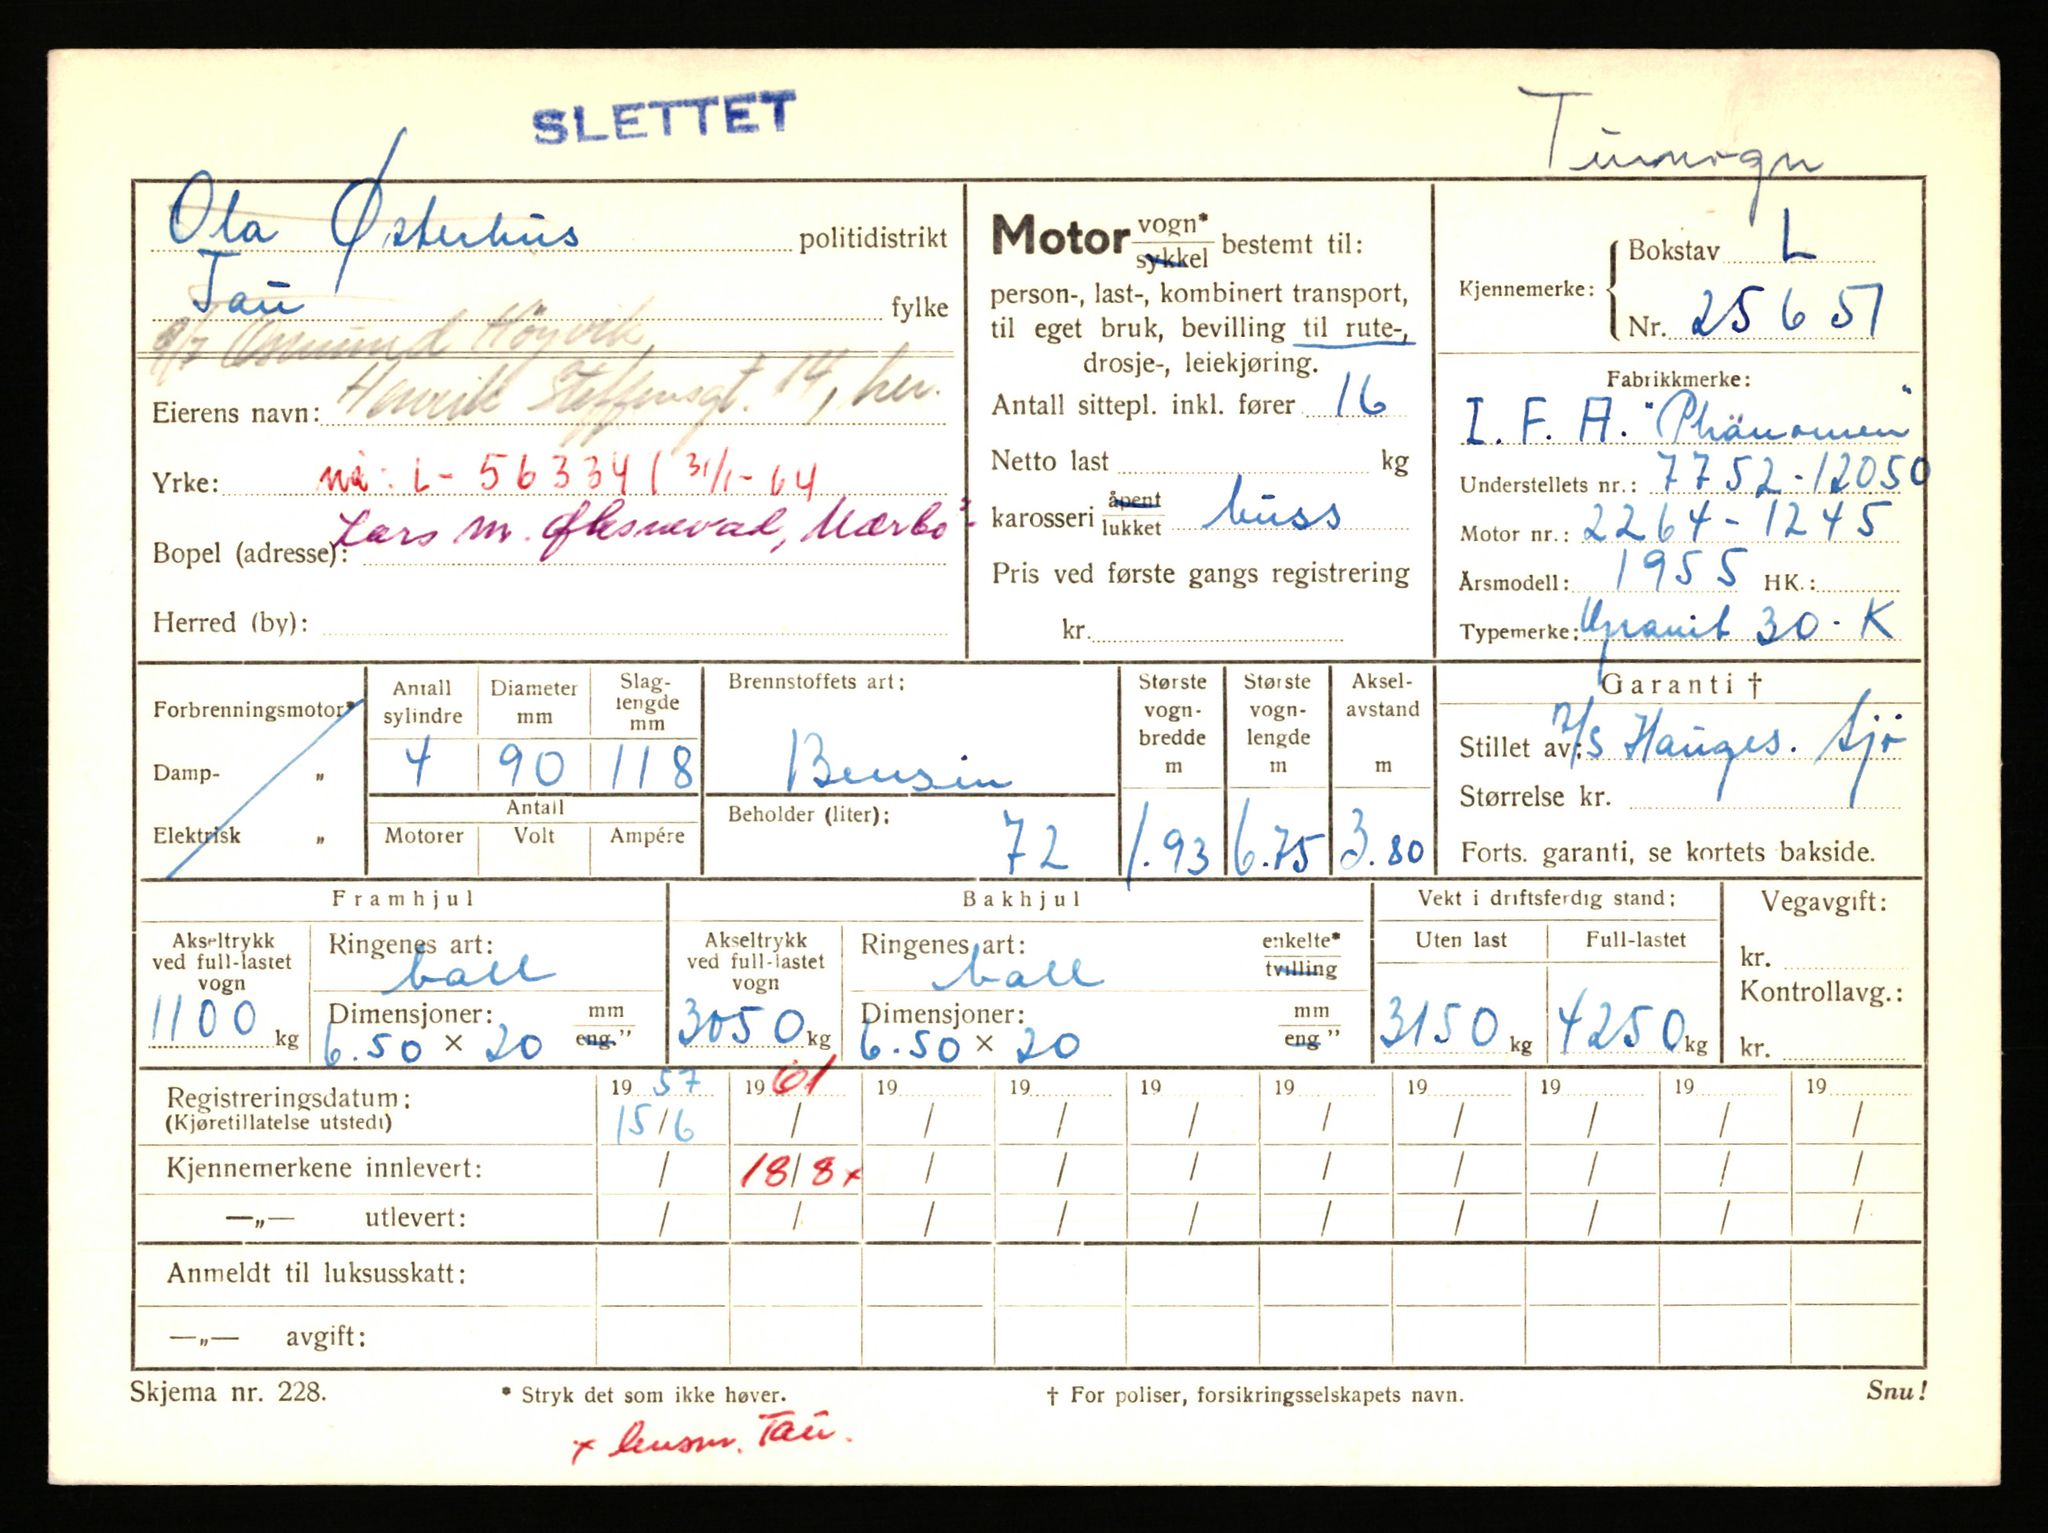 SLETTET
Turvogn
Ola Østerhus politidistrikt
Tau fylke
Åsmund Höyvik,
Henrik Steffensgt. 14, her.
Eierens navn:
Yrke: nå: L-56334 ( 31/1-64
Lars M. Oksnevad, Nærbø
Bopel (adresse):
Herred (by):
Motor vogn* sykkel bestemt til:
person-, last-, kombinert transport,
til eget bruk, bevilling til rute-,
drosje-, leiekjøring.
Antall sittepl. inkl. fører 16
Netto last kg
karosseri åpent lukket buss
Pris ved første gangs registrering
kr.
Kjennemerke: Bokstav L
Nr. 25651
Fabrikkmerke:
I. F. A. "Phänomen"
Understellets nr.: 7752-12050
Motor nr.: 2264-1245
Årsmodell: 1955 HK.:
Typemerke: Granit 30-K
Forbrenningsmotor*
Damp- „
Elektrisk „
Antall sylindre 4
Diameter mm 90
Slag-lengde mm 118
Antall
Motorer Volt Ampére
Brennstoffets art:
Bensin
Beholder (liter):
72
Største vogn-bredde m 1.93
Største vogn-lengde m 6.75
Aksel-avstand m 3.80
Garanti †
Stillet av: A/S Hauges. Sjö
Størrelse kr.
Forts. garanti, se kortets bakside.
Framhjul
Akseltrykk ved full-lastet vogn
1100 kg
Ringenes art:
ball
Dimensjoner: mm eng."
6.50 × 20
Bakhjul
Akseltrykk ved full-lastet vogn
3050 kg
Ringenes art: enkelte* tvilling
ball
Dimensjoner: mm eng "
6.50 × 20
Vekt i driftsferdig stand:
Uten last Full-lastet
3150 kg 4250 kg
Vegavgift:
kr.
Kontrollavg.:
kr.
Registreringsdatum: 19 57 19 61 19 19 19 19 19 19 19 19
(Kjøretillatelse utstedt) 15/6 / / / / / / / / /
Kjennemerkene innlevert: / 18/8 x / / / / / / / /
—„— utlevert: / / / / / / / / / /
Anmeldt til luksusskatt:
—„— avgift:
Skjema nr. 228. * Stryk det som ikke høver. † For poliser, forsikringsselskapets navn. Snu!
x lensm. Tau.